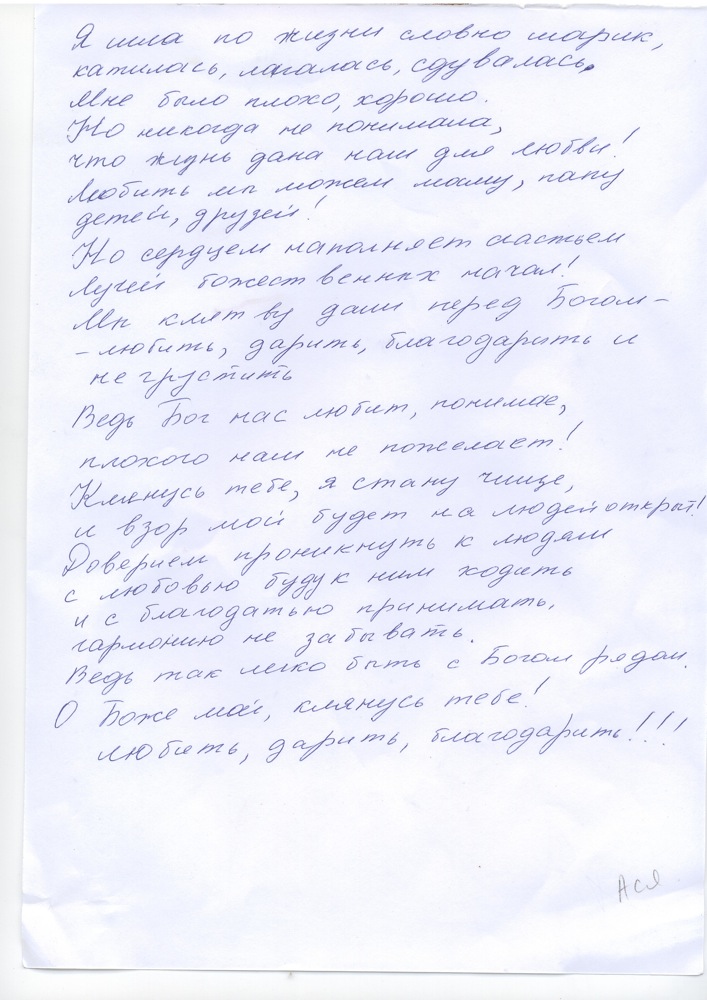 Я шла по жизни словно шарик,
катилась, лагалась, сдувалась,
Мне было плохо, хорошо.
Но никогда не понимала,
что жизнь дана нам для любви!
Любить мы можем маму, папу
детей, друзей!
Но сердцем наполняет счастьем
Лучей божественных начал!
Мы клятву дали перед Богом -
- любить, дарить, благодарить и
не грустить
Ведь Бог нас любит, понимае,
плохого нам не пожелает!
Клянусь тебе, я стану чище,
и взор мой будет на людей открыт!
Доверием проникнуть к людям
с любовью буду к ним ходить
и с благодатью принимать,
гармонию не забывать.
Ведь так легко быть с Богом рядом.
О Боже мой, клянусь тебе!
любить, дарить, благодарить!!!
Ася